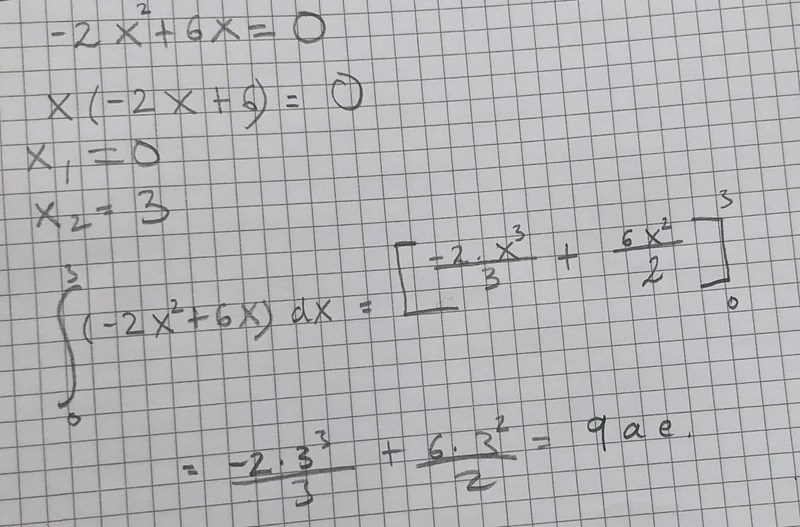 -2x² + 6x = 0
x(-2x + 6) = 0
x₁ = 0
x₂ = 3
∫₀³ (-2x² + 6x) dx = [(-2·x³)/3 + (6x²)/2]₀³
= (-2·3³)/3 + (6·3²)/2 = 9 a e.